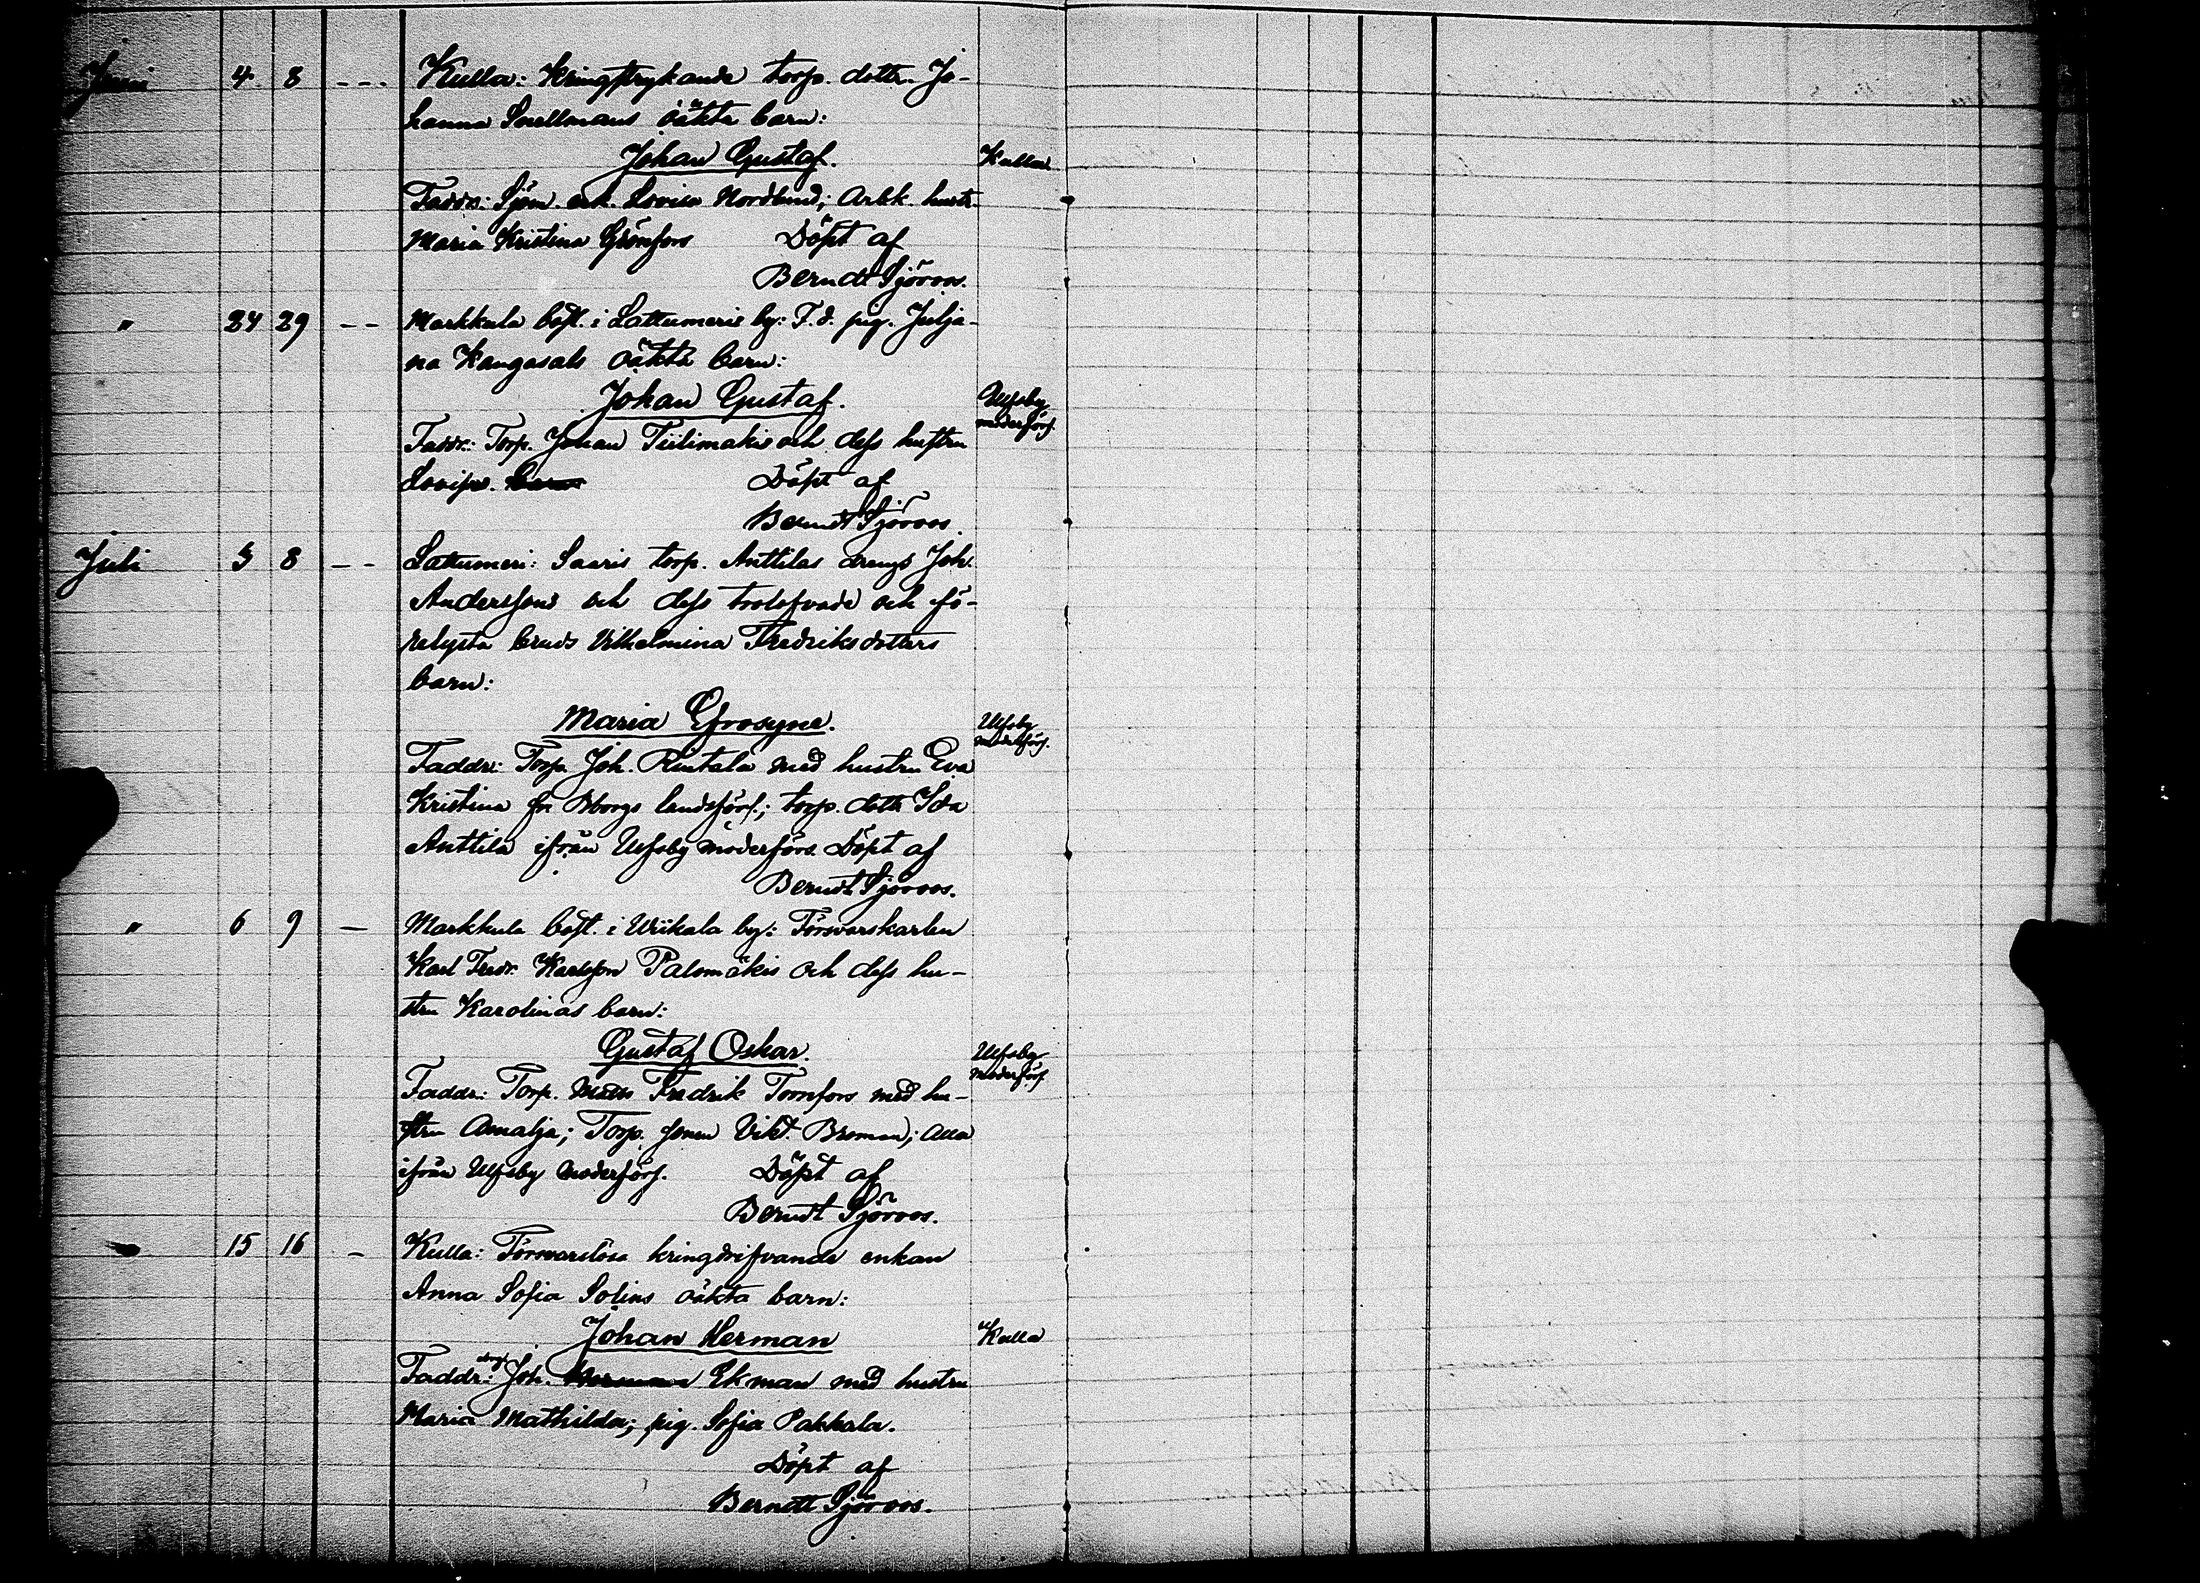 Juni 4 8 --- Kulla: Kringstrykande torp. dottr. Jo-
hanna Snellmans oäkta barn:
Johan Gustaf. Kulla
Faddr: Sjöm. enk. Lovisa Nordlund; Arbk. hustr.
Maria Kristina Grönfors Döpt af
Berndt Sjöroos.
" 24 29 -- Markkula bost. i Lattumeris by: F.d. pig. Julja-
na Kangasals oäkta barn:
Johan Gustaf. Ulfsby
moderförs.
Faddr: Torp. Johan Tiilimakis och dess hustru
Lovisa. Döpt af
Berndt Sjöroos.
Juli 5 8 -- Lattumeri: Saaris torp. Anttilas drengs Joh.
Anderssons och dess trolofvade och fö-
relysta bruds Vilhelmina Fredriksdotters
barn:
Maria Efrosyne. Ulfsby
moderförs.
Faddr: Torp. Joh. Rintala med hustru Eva
Kristina fr. Bborgs landsförs.; torp. dottr Ida
Anttila ifrån Ulfsby moderförs. Döpt af
Berndt Sjöroos.
" 6 9 - Markkula bost. i Wiikala by: Försvarskarlen
Karl Fredr. Karlsson Palomäkis och dess hu-
stru Karolinas barn:
Gustaf Oskar. Ulfsby
moderförs.
Faddr: Torp. Fredrik Tornfors med hu-
stru Amalja; Torp. sonen Vikt. Broman; alla
ifrån Ulfsby moderförs. Döpt af
Berndt Sjöroos.
15 16 - Kulla: Försvarslösa kringdrifvande enkan
Anna Sofia Solins oäkta barn:
Johan Herman Kulla
Faddr: drgn Joh. Ekman med hustru
Maria Mathilda; pig. Sofia Pakkala.
Döpt af
Berndt Sjöroos.